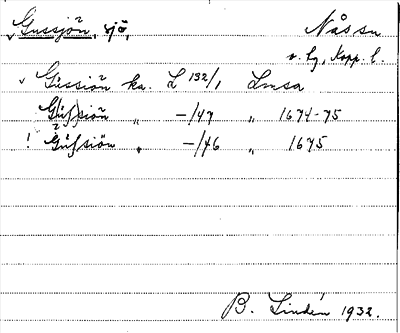 Gussjön, sjö,
Nås sn
v. bg, Kopp. l.
v Gussiön ka. L 132/1 Lmsa
Gussiön " -/47 " 1674-75
! Gussiön " -/46 " 1675
B. Lindén 1932.